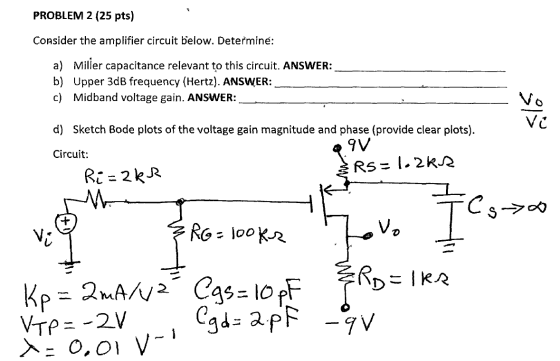 PROBLEM 2 (25 pts)
Consider the amplifier circuit below. Determine:
a) Miller capacitance relevant to this circuit. ANSWER:
b) Upper 3dB frequency (Hertz). ANSWER:
c) Midband voltage gain. ANSWER:
Vo
Vi
d) Sketch Bode plots of the voltage gain magnitude and phase (provide clear plots).
Circuit:
9V
RS = 1.2kΩ
Ri = 2kΩ
Cs→∞
Vi
+
-
RG = 100kΩ
Vo
RD = 1kΩ
-9V
Kp = 2mA/V²
Cgs = 10pF
VTP = -2V
Cgd = 2pF
λ = 0.01 V⁻¹